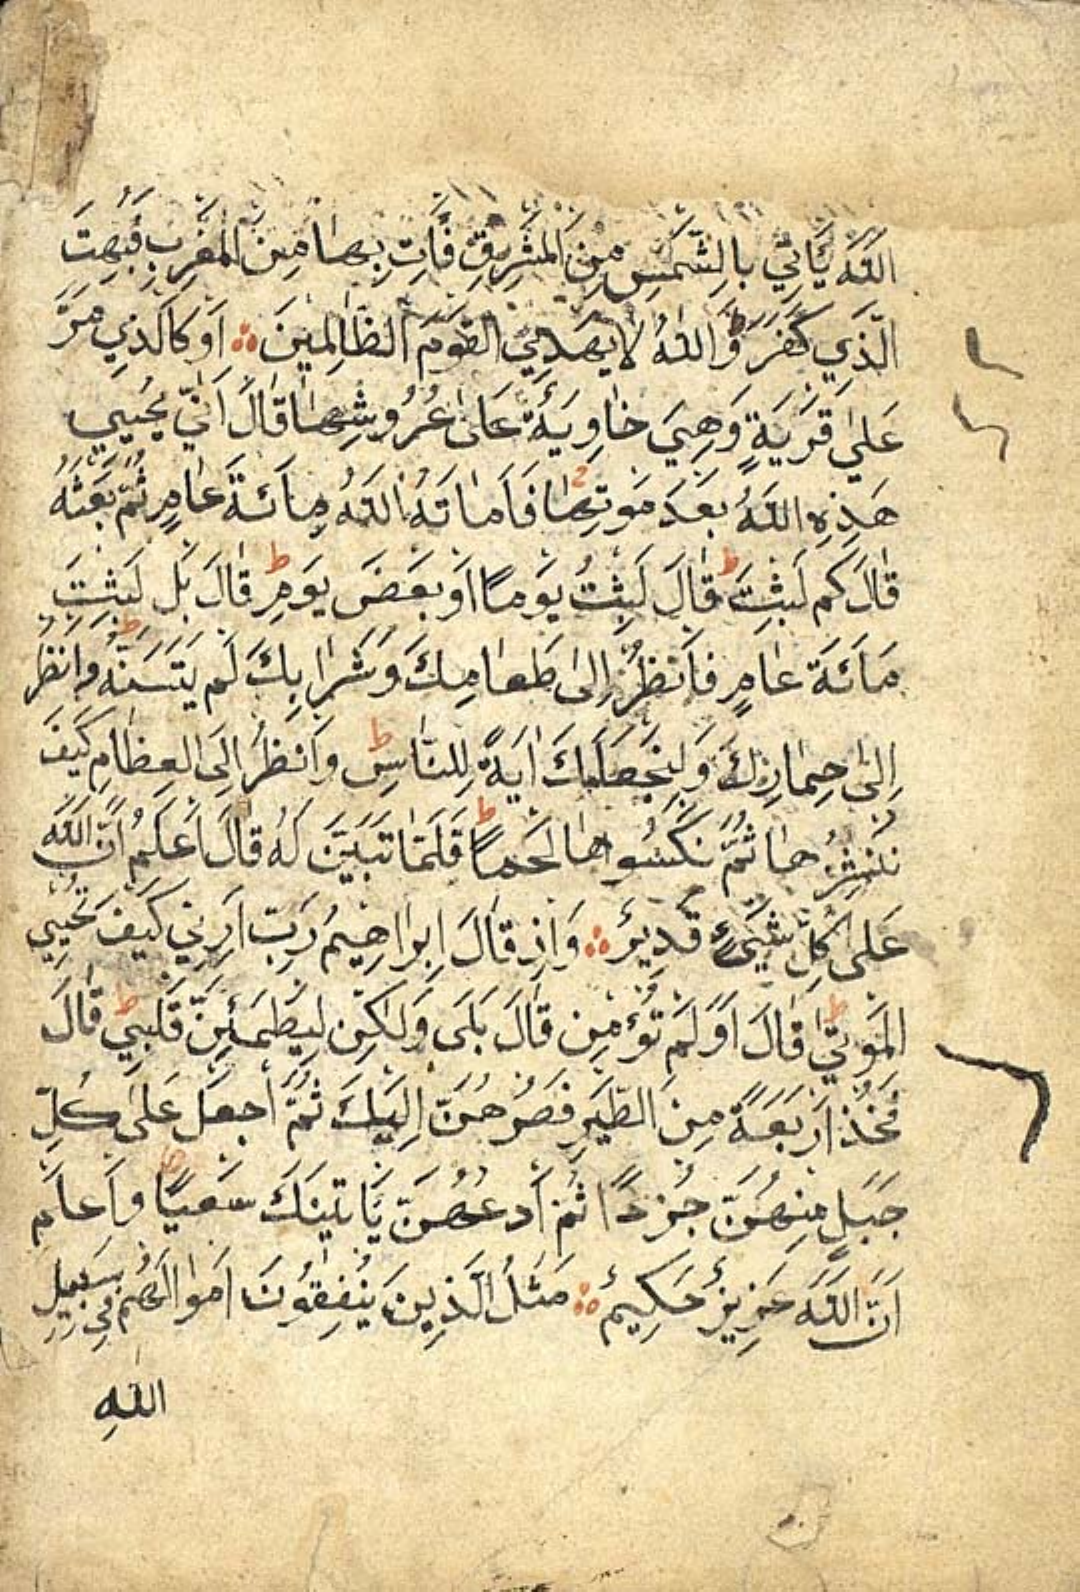 اللّٰهَ يَأْتِي بِالشَّمْسِ مِنَ الْمَشْرِقِ فَأْتِ بِهَا مِنَ الْمَغْرِبِ فَبُهِتَ
الَّذِي كَفَرَ ط وَاللّٰهُ لَا يَهْدِي الْقَوْمَ الظَّالِمِينَ ∴ أَوْ كَالَّذِي مَرَّ
عَلٰى قَرْيَةٍ وَهِيَ خَاوِيَةٌ عَلٰى عُرُوشِهَا قَالَ أَنّٰى يُحْيِي
هٰذِهِ اللّٰهُ بَعْدَ مَوْتِهَا ج فَأَمَاتَهُ اللّٰهُ مِائَةَ عَامٍ ثُمَّ بَعَثَهُ
قَالَ كَمْ لَبِثْتَ ط قَالَ لَبِثْتُ يَوْمًا أَوْ بَعْضَ يَوْمٍ ط قَالَ بَلْ لَبِثْتَ
مِائَةَ عَامٍ فَانْظُرْ إِلٰى طَعَامِكَ وَشَرَابِكَ لَمْ يَتَسَنَّهْ ط وَانْظُرْ
إِلٰى حِمَارِكَ وَلِنَجْعَلَكَ اٰيَةً لِلنَّاسِ ط وَانْظُرْ إِلَى الْعِظَامِ كَيْفَ
نُنْشِزُهَا ثُمَّ نَكْسُوهَا لَحْمًا ط فَلَمَّا تَبَيَّنَ لَهُ قَالَ أَعْلَمُ أَنَّ اللّٰهَ
عَلٰى كُلِّ شَيْءٍ قَدِيرٌ ∴ وَإِذْ قَالَ إِبْرَاهِيمُ رَبِّ أَرِنِي كَيْفَ تُحْيِي
الْمَوْتٰى ط قَالَ أَوَلَمْ تُؤْمِنْ قَالَ بَلٰى وَلٰكِنْ لِيَطْمَئِنَّ قَلْبِي ط قَالَ
فَخُذْ أَرْبَعَةً مِنَ الطَّيْرِ فَصُرْهُنَّ إِلَيْكَ ثُمَّ اجْعَلْ عَلٰى كُلِّ
جَبَلٍ مِنْهُنَّ جُزْءًا ثُمَّ ادْعُهُنَّ يَأْتِينَكَ سَعْيًا ط وَاعْلَمْ
أَنَّ اللّٰهَ عَزِيزٌ حَكِيمٌ ∴ مَثَلُ الَّذِينَ يُنْفِقُونَ أَمْوَالَهُمْ فِي سَبِيلِ
اللّٰهِ